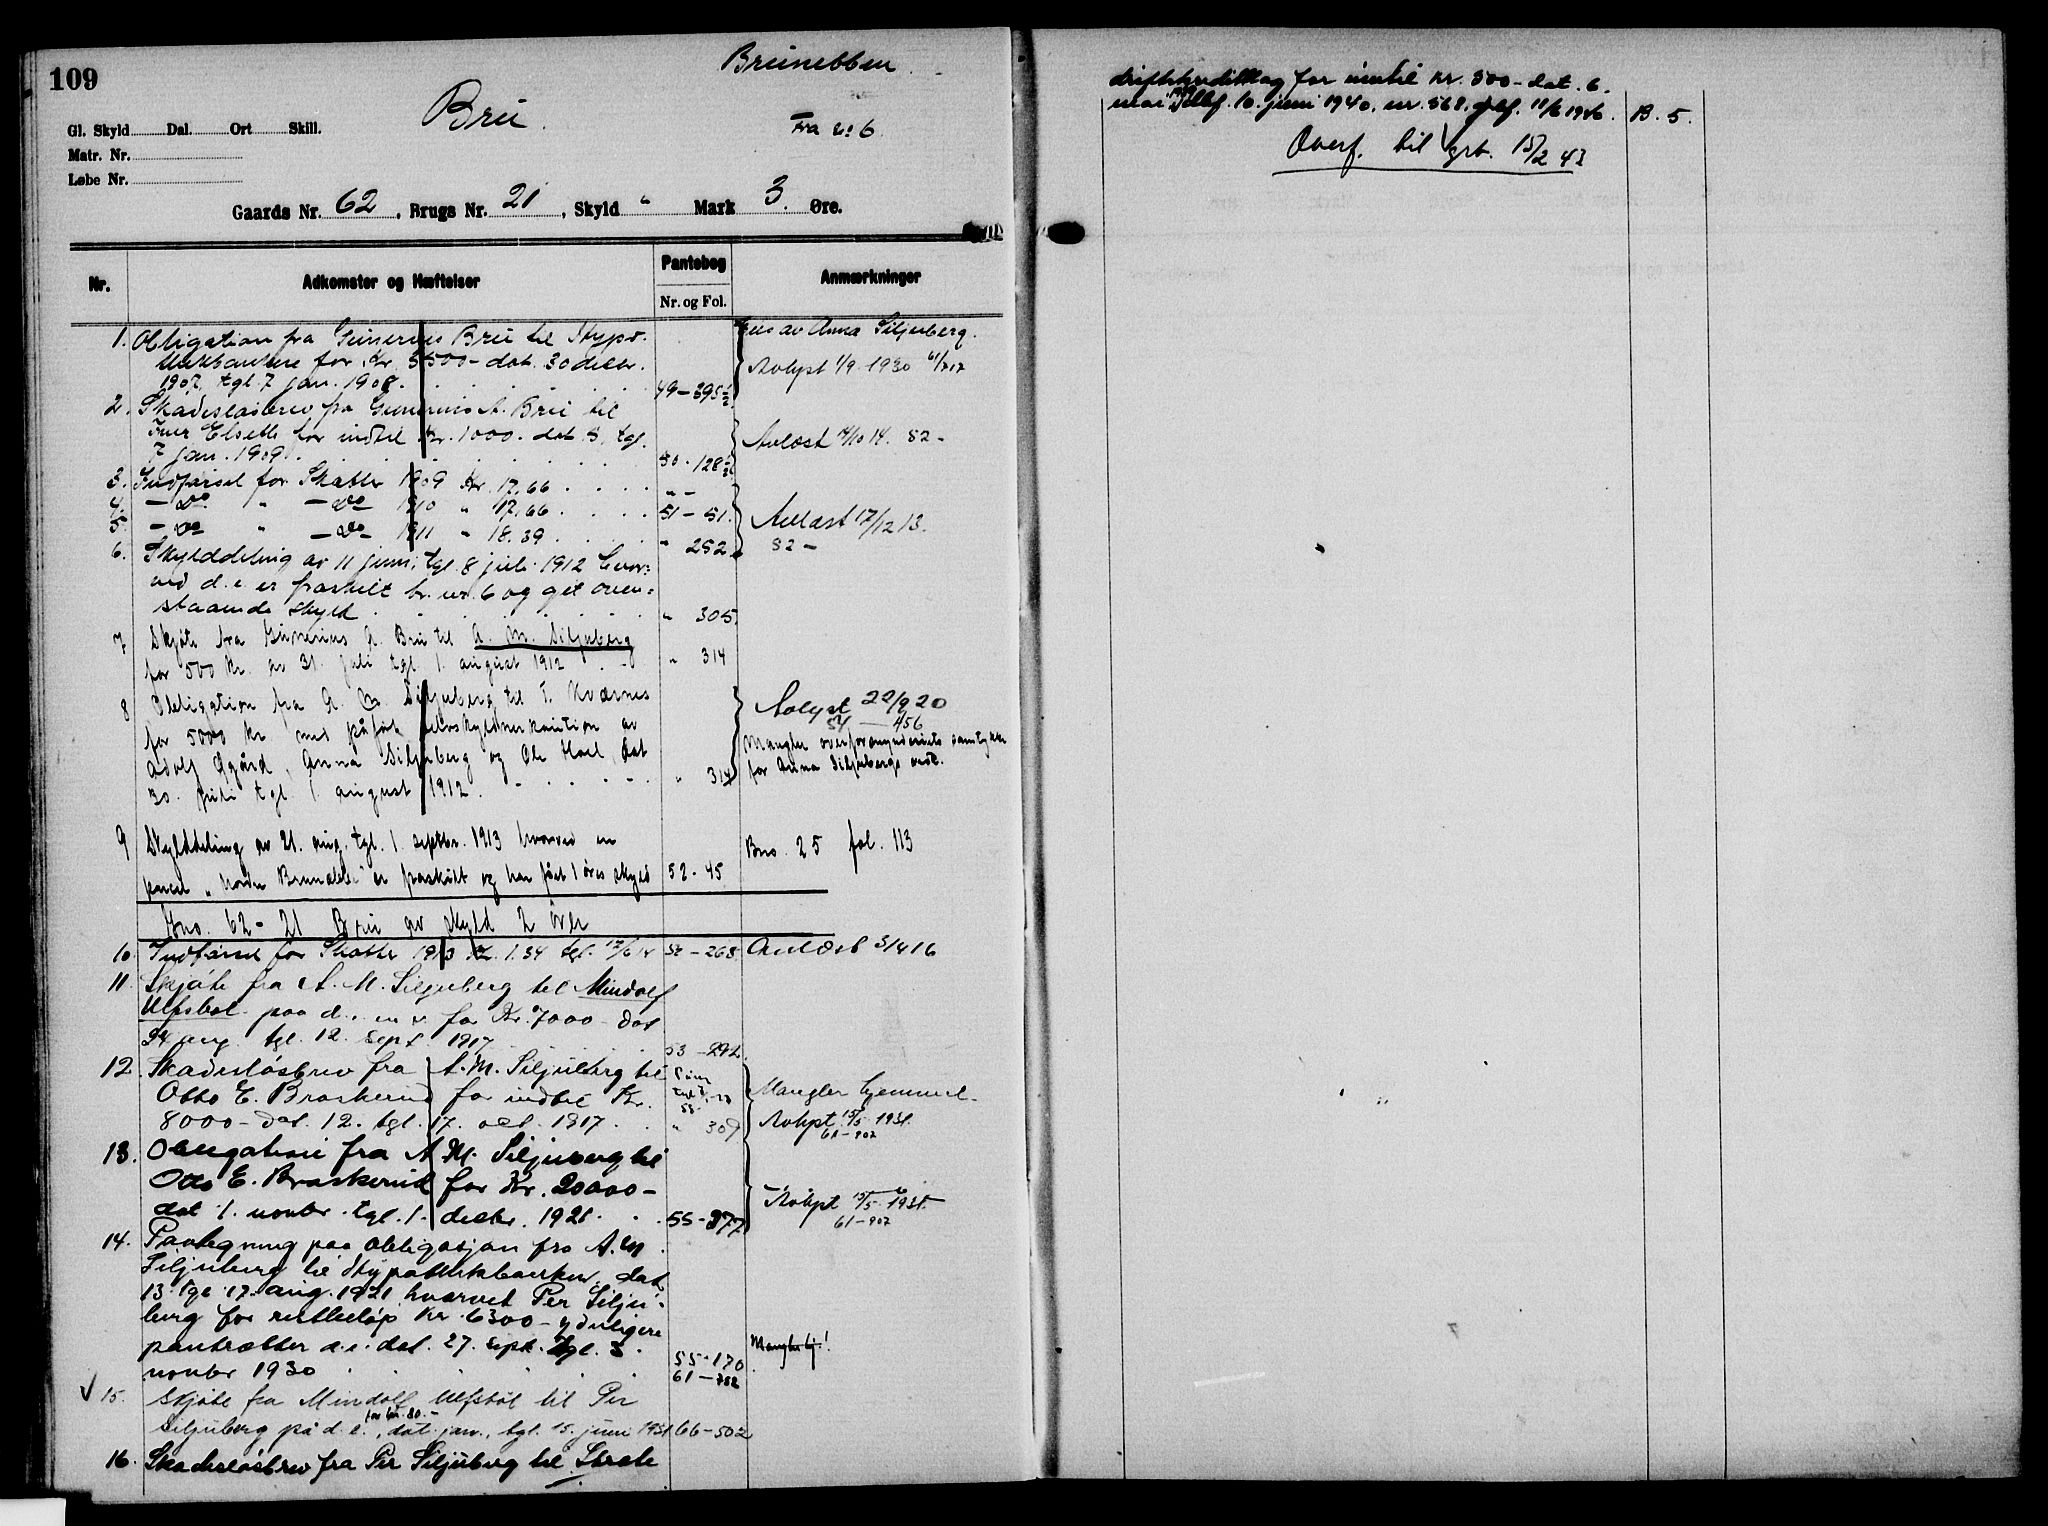 109
Brunebben
Bru.
Fra No 6
Gl. Skyld Dal. Ort Skill.
Matr. Nr.
Løbe Nr.
Gaards Nr. 62, Brugs Nr. 21, Skyld " Mark 3. Øre.
Nr. Adkomster og Hæftelser Pantebog Nr. og Fol. Anmærkninger
1. Obligation fra Gunerius Bru til Hypo-
thekbanken for Kr. 3500 - dat. 30 decbr. Avlyst 1/9 1930
1907, tgl. 7 jan. 1908. 49-395
2. Skadesløsbrev fra Gunerius A. Bru til
Iver Elseth for indtil Kr. 1000. dat. 5. tgl. Avlæst 14/10 14. 52-
7 jan. 1909. 50-128
3. Indførsel for Skatter 1909 Kr. 17.66
4. - Do " - Do 1910 " 17.66 51-51. Avlæst 17/12 13.
5. - Do " - Do 1911 " 18.39 " 252 52-
6. Skylddeling av 11 juni, tgl. 8 juli 1912 hvor-
ved d. e. er fraskilt br. nr. 6 og git oven-
staaende skyld " 305.
7 Skjøte fra Gunerius A. Bru til A. M. Siljuberg
for 500 kr. av 31. juli tgl. 1. august 1912 " 314
8 Obligation fra A. M. Siljuberg til T. Kværnes Avlyst 22/9 20
for 5000 kr med påført selvskyldnerkaution av 54 - 456
Adolf Øgård, Anna Siljuberg og Ole Hoel, dat Mangler overformynderiets samtykke
30. juli tgl. 1 august 1912. " 314 for Anna Siljubergs vedk.
9 Skylddeling av 21. aug. tgl. 1. septbr. 1913 hvorved en Bno. 25 fol. 113
parcel "Nordre Brunebben" er fraskilt og har fåt 1 øres skyld 52-45
Gno. 62-21 Bru av skyld 2 øre
10. Indførsel for Skatter 1913 Kr. 1.34 tgl. 17/6 14 52-268. Avlæst 3/4 16
11. Skjøte fra A. M. Siljuberg til Mindolf
Ulfsbøl paa d. e. m. v. for Kr. 7000 - dat
24 aug. tgl. 12. sept. 1917. 53-292.
12. Skadesløsbrev fra A. M. Siljuberg til
Otto E. Braskerud for indtil Kr. Mangler hjemmel.
8000 - dat. 12. tgl. 17. oct. 1917. " 309 Avlyst 15/5 1931.
61-902
13. Obligation fra A. M. Siljuberg til
Otto E. Braskerud for Kr. 20000 - Avlyst 15/5 1931.
dat 1. novbr. tgl. 1. decbr. 1921. 55-277 61-902
14. Paategning paa obligasjon fra A. M.
Siljuberg til Hypotekbanken, dat.
13. tgl. 17. aug. 1921 hvorved Per Silju-
berg for restbeløp Kr. 6300 - yderligere
pantsetter d. e. dat. 27. sept. tgl. 3. 55-170 Mangler hj.!
novbr 1930 61-782
✓ 15. Skjøte fra Mindolf Ulfsbøl til Per
Siljuberg på d. e. for kr. 80.-, dat. jan., tgl. 15. juni 1931. 66-502
16. Skadesløsbrev fra Per Siljuberg til Strøk
driftskredittlag for inntil kr. 500 - dat. 6.
mai tgl. 10. juni 1940. nr. 568. B. 5.
Overf. til grb. 15/2 43